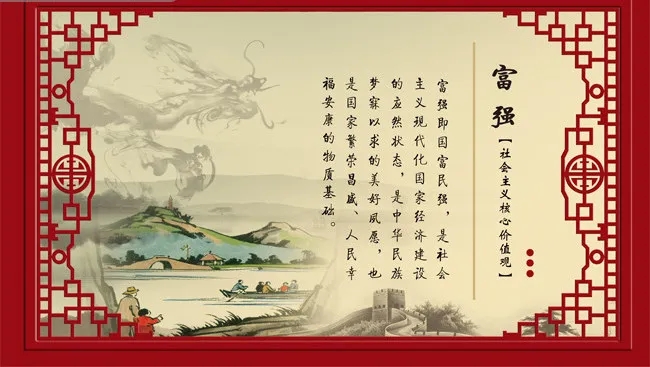 富强
【社会主义核心价值观】
富强即国富民强，是社会
主义现代化国家经济建设
的应然状态，是中华民族
梦寐以求的美好夙愿，也
是国家繁荣昌盛、人民幸
福安康的物质基础。